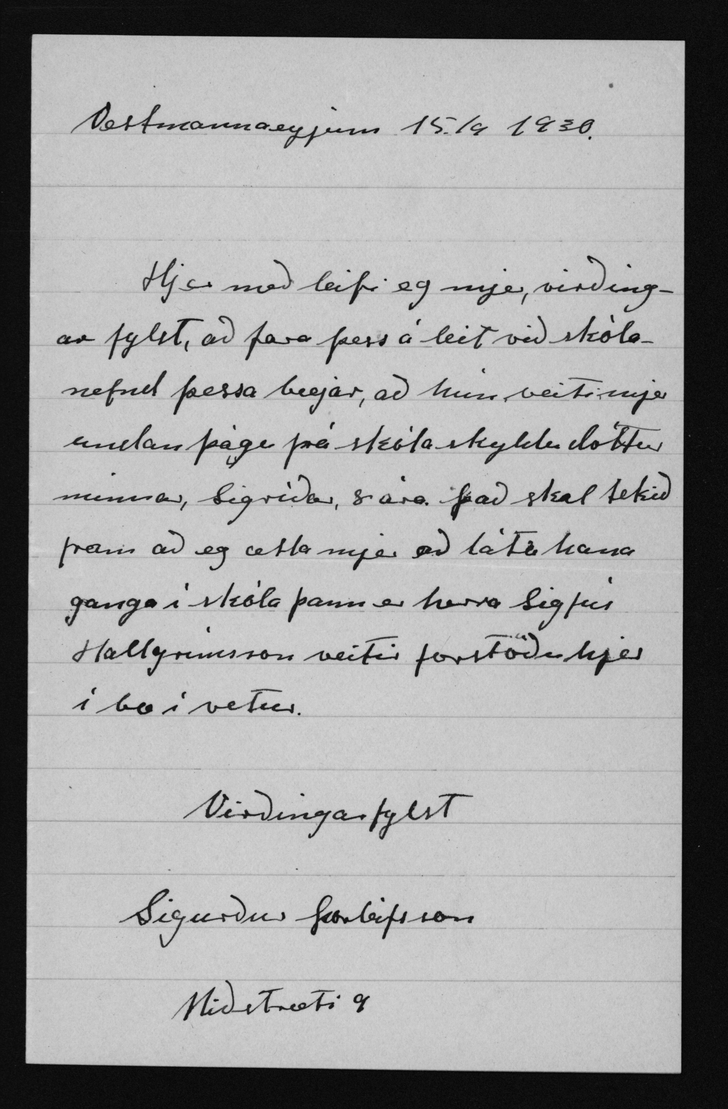 Vestmannaeyjum 15./9 1930.
Hjer með leifi eg mjer, virðing-
ar fylst, að fara þess á leit við skóla-
nefnd þessa bæjar, að hún veiti mjer
undan þágu frá skólaskyldu dóttur
minnar, Sigríðar, 8 ára. Það skal tekið
fram að eg ætla mjer að láta hana
ganga í skóla þann er herra Sigfús
Hallgrímsson veitir forstöðu hjer
í bæ í vetur.
Virðingarfylst
Sigurður Þorleifsson
Miðstræti 9